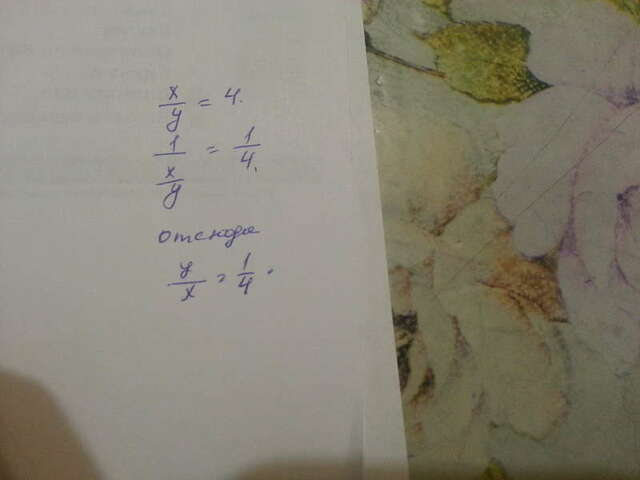 x/y = 4.
1/(x/y) = 1/4.
отсюда
y/x = 1/4.